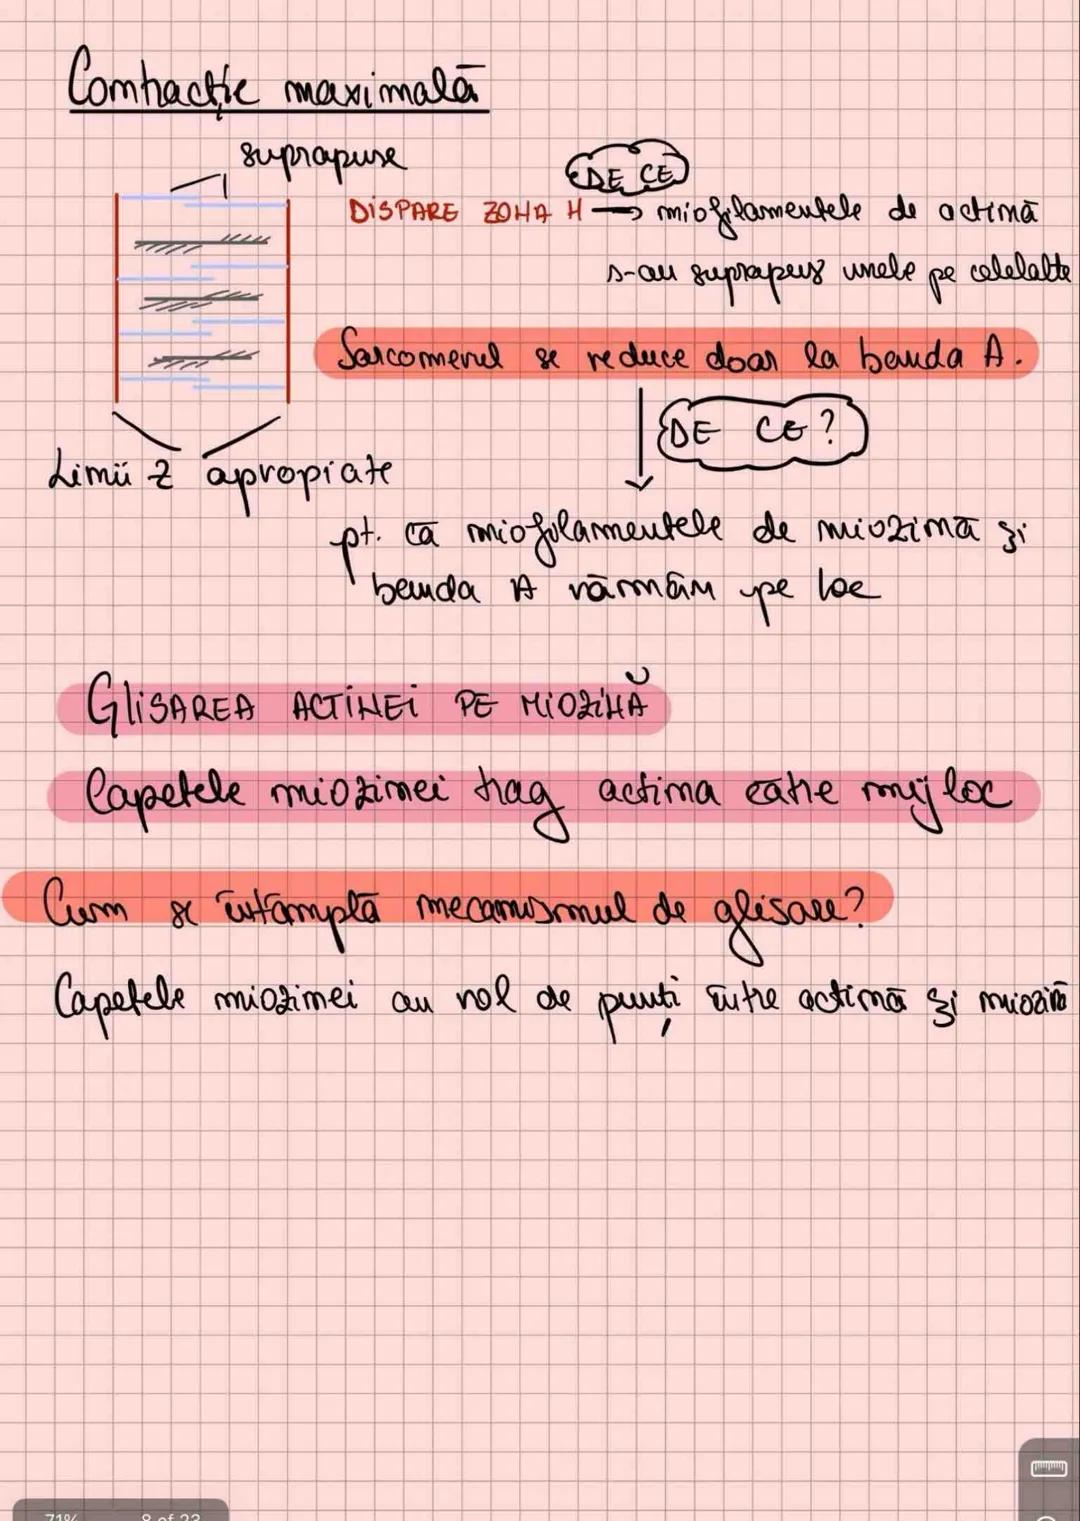 Contracție maximală
suprapuse
DE CE
DISPARE ZONA H → miofilamentele de actină
s-au suprapus unele pe celelalte
Sarcomerul se reduce doar la banda A.
DE CE?
Limii Z apropiate
pt. că miofilamentele de miozină și
banda A rămân pe loc
GLISAREA ACTINEI PE MIOZINĂ
Capetele miozinei trag actina către mijloc
Cum se întâmplă mecanismul de glisare?
Capetele miozinei au rol de punți între actină și miozină
71% 8 of 23